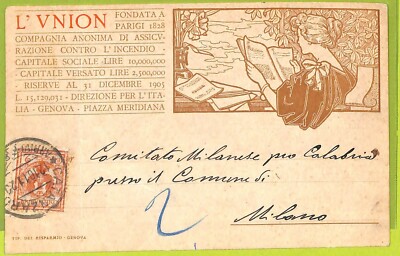 L'VNION FONDATA A
PARIGI 1828
COMPAGNIA ANONIMA DI ASSICV-
RAZIONE CONTRO L'INCENDIO -
CAPITALE SOCIALE · LIRE 10,000,000
CAPITALE VERSATO LIRE 2,500,000
- RISERVE AL 31 DICEMBRE 1905
L. 13,129,031 - DIREZIONE PER L'ITA-
LIA - GENOVA - PIAZZA MERIDIANA
Comitato Milanese pro Calabria
presso il Comune di
Milano
2
LIT. DEL RISPARMIO - GENOVA